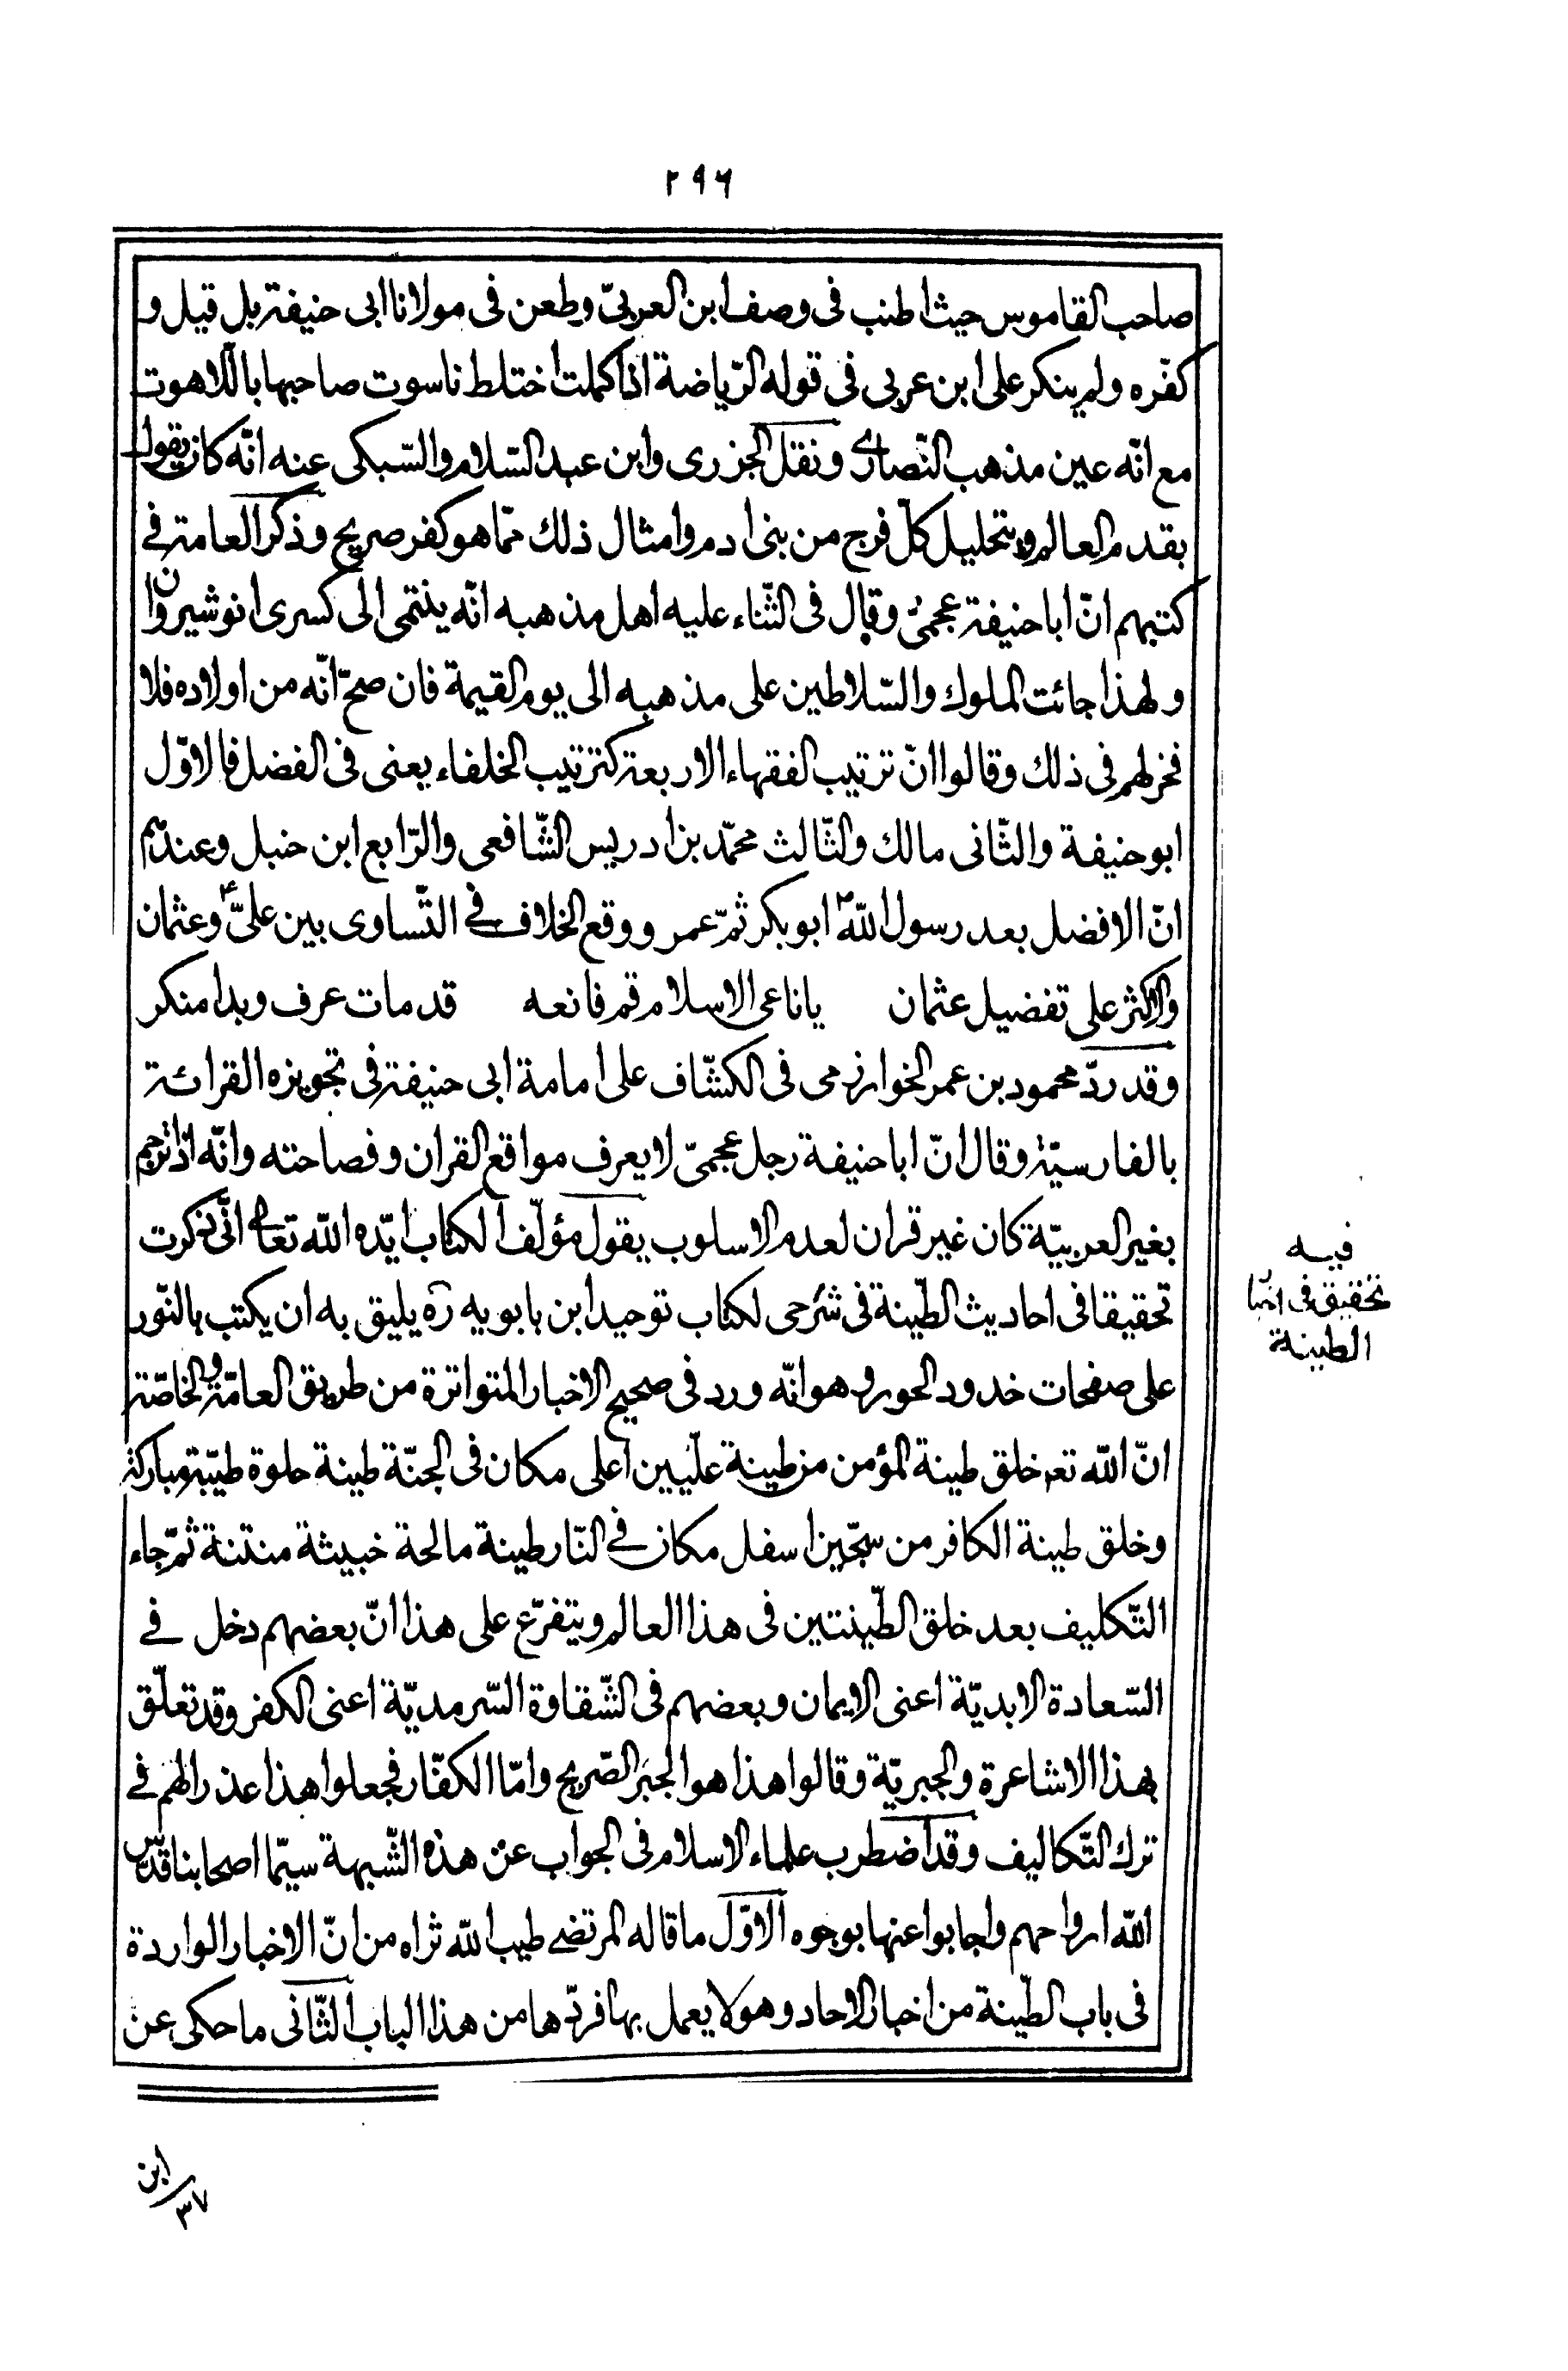 ۲۹۶
صاحب القاموس حيث اطنب فى وصف ابن العربىّ وطعن فى مولانا ابى حنيفة بل قيل و
كفّره ولم ينكر على ابن عربى فى قوله الرّياضة اذا كملت اختلط ناسوت صاحبها باللاهوت
مع انّه عين مذهب النّصارى ونقل الجزرى وابن عبد السّلام والسّبكى عنه انّه كان يقول
بقدم العالم وبتحليل كلّ فرج من بنى ادم وامثال ذلك ممّا هو كفر صريح وذكر العامة فى
كتبهم انّ ابا حنيفة عجمىّ وقال فى الثّناء عليه اهل مذهبه انّه ينتمى الى كسرى انوشيروان
ولهذا جائت الملوك والسّلاطين على مذهبه الى يوم القيمة فان صحّ انّه من اولاده فلا
فخر لهم فى ذلك وقالوا انّ ترتيب الفقهاء الاربعة كترتيب الخلفاء يعنى فى الفضل فالاوّل
ابو حنيفة والثّانى مالك والثّالث محمّد بن ادريس الشّافعى والرّابع ابن حنبل وعندهم
انّ الافضل بعد رسول اللّه ص ابو بكر ثمّ عمر ووقع الخلاف فى التّساوى بين علىّ ع وعثمان
والاكثر على تفضيل عثمان يا ناعى الاسلام قم فانعه قد مات عرف وبدا منكر
وقد ردّ محمود بن عمر الخوارزمى فى الكشّاف على امامة ابى حنيفة فى تجويزه القرائة
بالفارسيّة وقال انّ ابا حنيفة رجل عجمىّ لا يعرف مواقع القران وفصاحته وانّه اذا ترجم
بغير العربيّة كان غير قران لعدم الاسلوب يقول مؤلّف الكتاب ايّده اللّه تعالى انّى ذكرت
تحقيقا فى احاديث الطّينة فى شرحى لكتاب توحيد ابن بابويه ره يليق به ان يكتب بالنّور
على صفحات خدود الحور وهو انّه ورد فى صحيح الاخبار المتواترة من طريق العامّة والخاصّة
انّ اللّه تعـ خلق طينة المؤمن من طينة علّيين اعلى مكان فى الجنّة طينة حلوة طيّبة مباركة
وخلق طينة الكافر من سجّين اسفل مكان فى النّار طينة مالحة خبيثة منتنة ثمّ جاء
التّكليف بعد خلق الطّينتين فى هذا العالم ويتفرّع على هذا انّ بعضهم دخل فى
السّعادة الابديّة اعنى الايمان وبعضهم فى الشّقاوة السّرمديّة اعنى الكفر وقد تعلّق
بهذا الاشاعرة والجبريّة وقالوا هذا هو الجبر الصّريح وامّا الكفّار فجعلوا هذا عذرا لهم فى
ترك التّكاليف وقد اضطرب علماء الاسلام فى الجواب عن هذه الشّبهة سيّما اصحابنا قدّس
اللّه ارواحهم واجابوا عنها بوجوه الاوّل ما قاله المرتضى طيب اللّه ثراه من انّ الاخبار الواردة
فى باب الطّينة من اخبار الاحاد وهو لا يعمل بها فردّها من هذا الباب الثّانى ما حكى عن
فيه
تحقيق فى اخبار
الطينة
ابن
۳۷